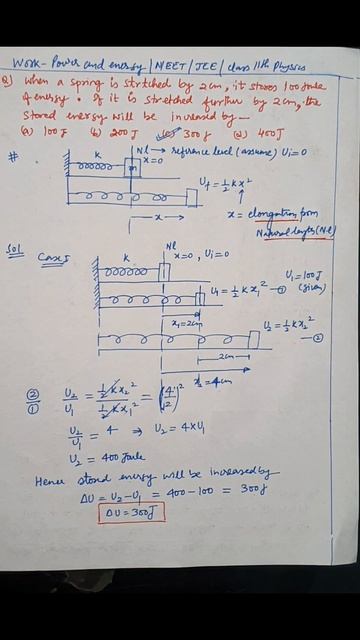 Work-Power and energy/NEET/JEE/class 11th Physics
Q) when a spring is stretched by 2cm, it stores 100 Joule
of energy. If it is stretched further by 2cm, the
stored energy will be increased by—
(a) 100J (b) 200J (c) 300J (d) 400J
# Nl → reference level (assume) Ui=0
K m x=0
Uf = ½Kx²
x
x = elongation from
Natural layer (Nl)
Sol Case I Nl
K x=0, Ui=0
U1 = 100J
(given)
U1 = ½Kx1² —①
x1=2cm
U2 = ½Kx2²
—②
2cm
x2=4cm
②/① U2/U1 = ½Kx2²/½Kx1² = (4/2)²
U2/U1 = 4 ⇒ U2 = 4xU1
U2 = 400 Joule
Hence stored energy will be increased by
ΔU = U2-U1 = 400-100 = 300J
ΔU=300J